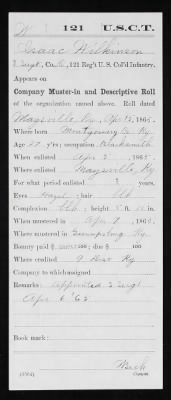 W 121 U.S.C.T.
Isaac Wilkinson
Sergt, Co. , 121 Reg't U. S. Col'd Infantry.
Appears on
Company Muster-in and Descriptive Roll
of the organization named above. Roll dated
Maysville Ky, Apr 12, 1865.
Where born Montgomery Co. Ky.
Age 27 y'rs; occupation Blacksmith
When enlisted Apr 3, 1865.
Where enlisted Maysville, Ky
For what period enlisted 3 years.
Eyes ; hair
Complexion ; height 5 ft. in.
When mustered in Apr 7, 1865.
Where mustered in Ky
Bounty paid $ 100; due $ 100
Where credited 9 Dist Ky
Company to which assigned
Remarks: Appointed Sergt
Apr 6 '65
Book mark:
Copyist.